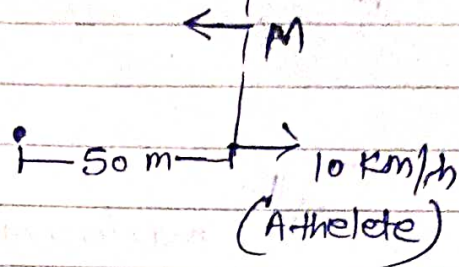 M
50 m
10 Km/h
(Athelete)